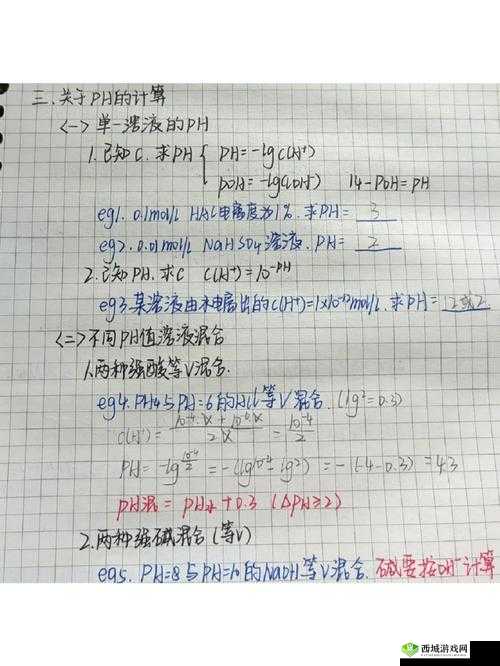 三.关于PH的计算
<一>单一溶液的PH
1.已知C.求PH { PH=-lgC(H⁺)
POH=-lgC(OH⁻) 14-POH=PH
eg1. 0.1mol/L HAc电离度为1%.求PH= 3
eg2. 0.01mol/L NaHSO4溶液.PH= 2
2.已知PH.求C C(H⁺)=10^-PH
eg3.某溶液由水电离出的C(H⁺)=1×10⁻¹²mol/L.求PH=12或2
<二>不同PH值溶液混合
1.两种强酸等V混合.
eg4.PH=4与PH=6的HCl等V混合.(lg²=0.3)
C(H⁺)= (10⁻⁴·X+10⁻⁶·X)/2X = 10⁻⁴/2
PH=-lg 10⁻⁴/2 =-(lg10⁻⁴-lg²)=-(-4-0.3)=4.3
PH混=PH小+0.3 (ΔPH≥2)
2.两种强碱混合(等V)
eg5. PH=8与PH=10的NaOH等V混合.碱要按OH⁻计算
西城游戏网